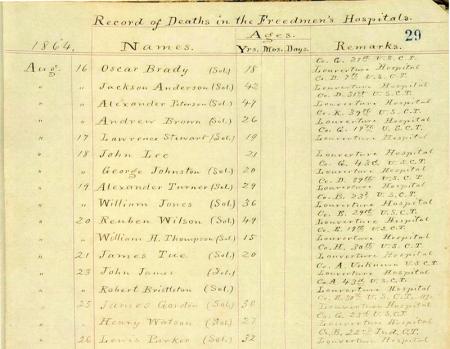 Record of Deaths in the Freedmen's Hospitals.
29
Ages.
1864. Names. Yrs. Mos. Days. Remarks.
Co. G. 31st U.S.C.T.
Aug. 16 Oscar Brady (Sol.) 18 Louverture Hospital
Co. D. 7th U.S.C.T.
" " Jackson Anderson (Sol.) 42 Louverture Hospital
Co. D. 31st U.S.C.T.
" " Alexander Peterson (Sol.) 47 Louverture Hospital
Co. K. 39th U.S.C.T.
" " Andrew Brown (Sol.) 26 Louverture Hospital
Co. G. 19th U.S.C.T.
" 17 Lawrence Stewart (Sol.) 19 Louverture Hospital
" 18 John Lee 21 Louverture Hospital
Co. G. 43d U.S.C.T.
" " George Johnston (Sol.) 20 Louverture Hospital
Co. D. 29th U.S.C.T.
" 19 Alexander Turner (Sol.) 29 Louverture Hospital
Co. B. 23d U.S.C.T.
" " William Jones (Sol.) 36 Louverture Hospital
Co. E. 29th U.S.C.T.
" 20 Reuben Wilson (Sol.) 49 Louverture Hospital
Co. E. 19th U.S.C.T.
" " William H. Thompson (Sol.) 15 Louverture Hospital
Co. H. 30th U.S.C.T.
" 21 James Tue (Sol.) 20 Louverture Hospital
Co. A. Unknown U.S.C.T.
" 23 John James (Sol.) Louverture Hospital
Co. A. 43d U.S.C.T.
" " Robert Bristleton (Sol.) Louverture Hospital
U.S.C.T.
" 25 James Gordon (Sol.) 30 Louverture Hospital
Co. G. 23d U.S.C.T.
" " Henry Watson (Sol.) 27 Louverture Hospital
Co. B. 22nd U.S.C.T.
" 26 Lewis Parker (Sol.) 32 Louverture Hospital